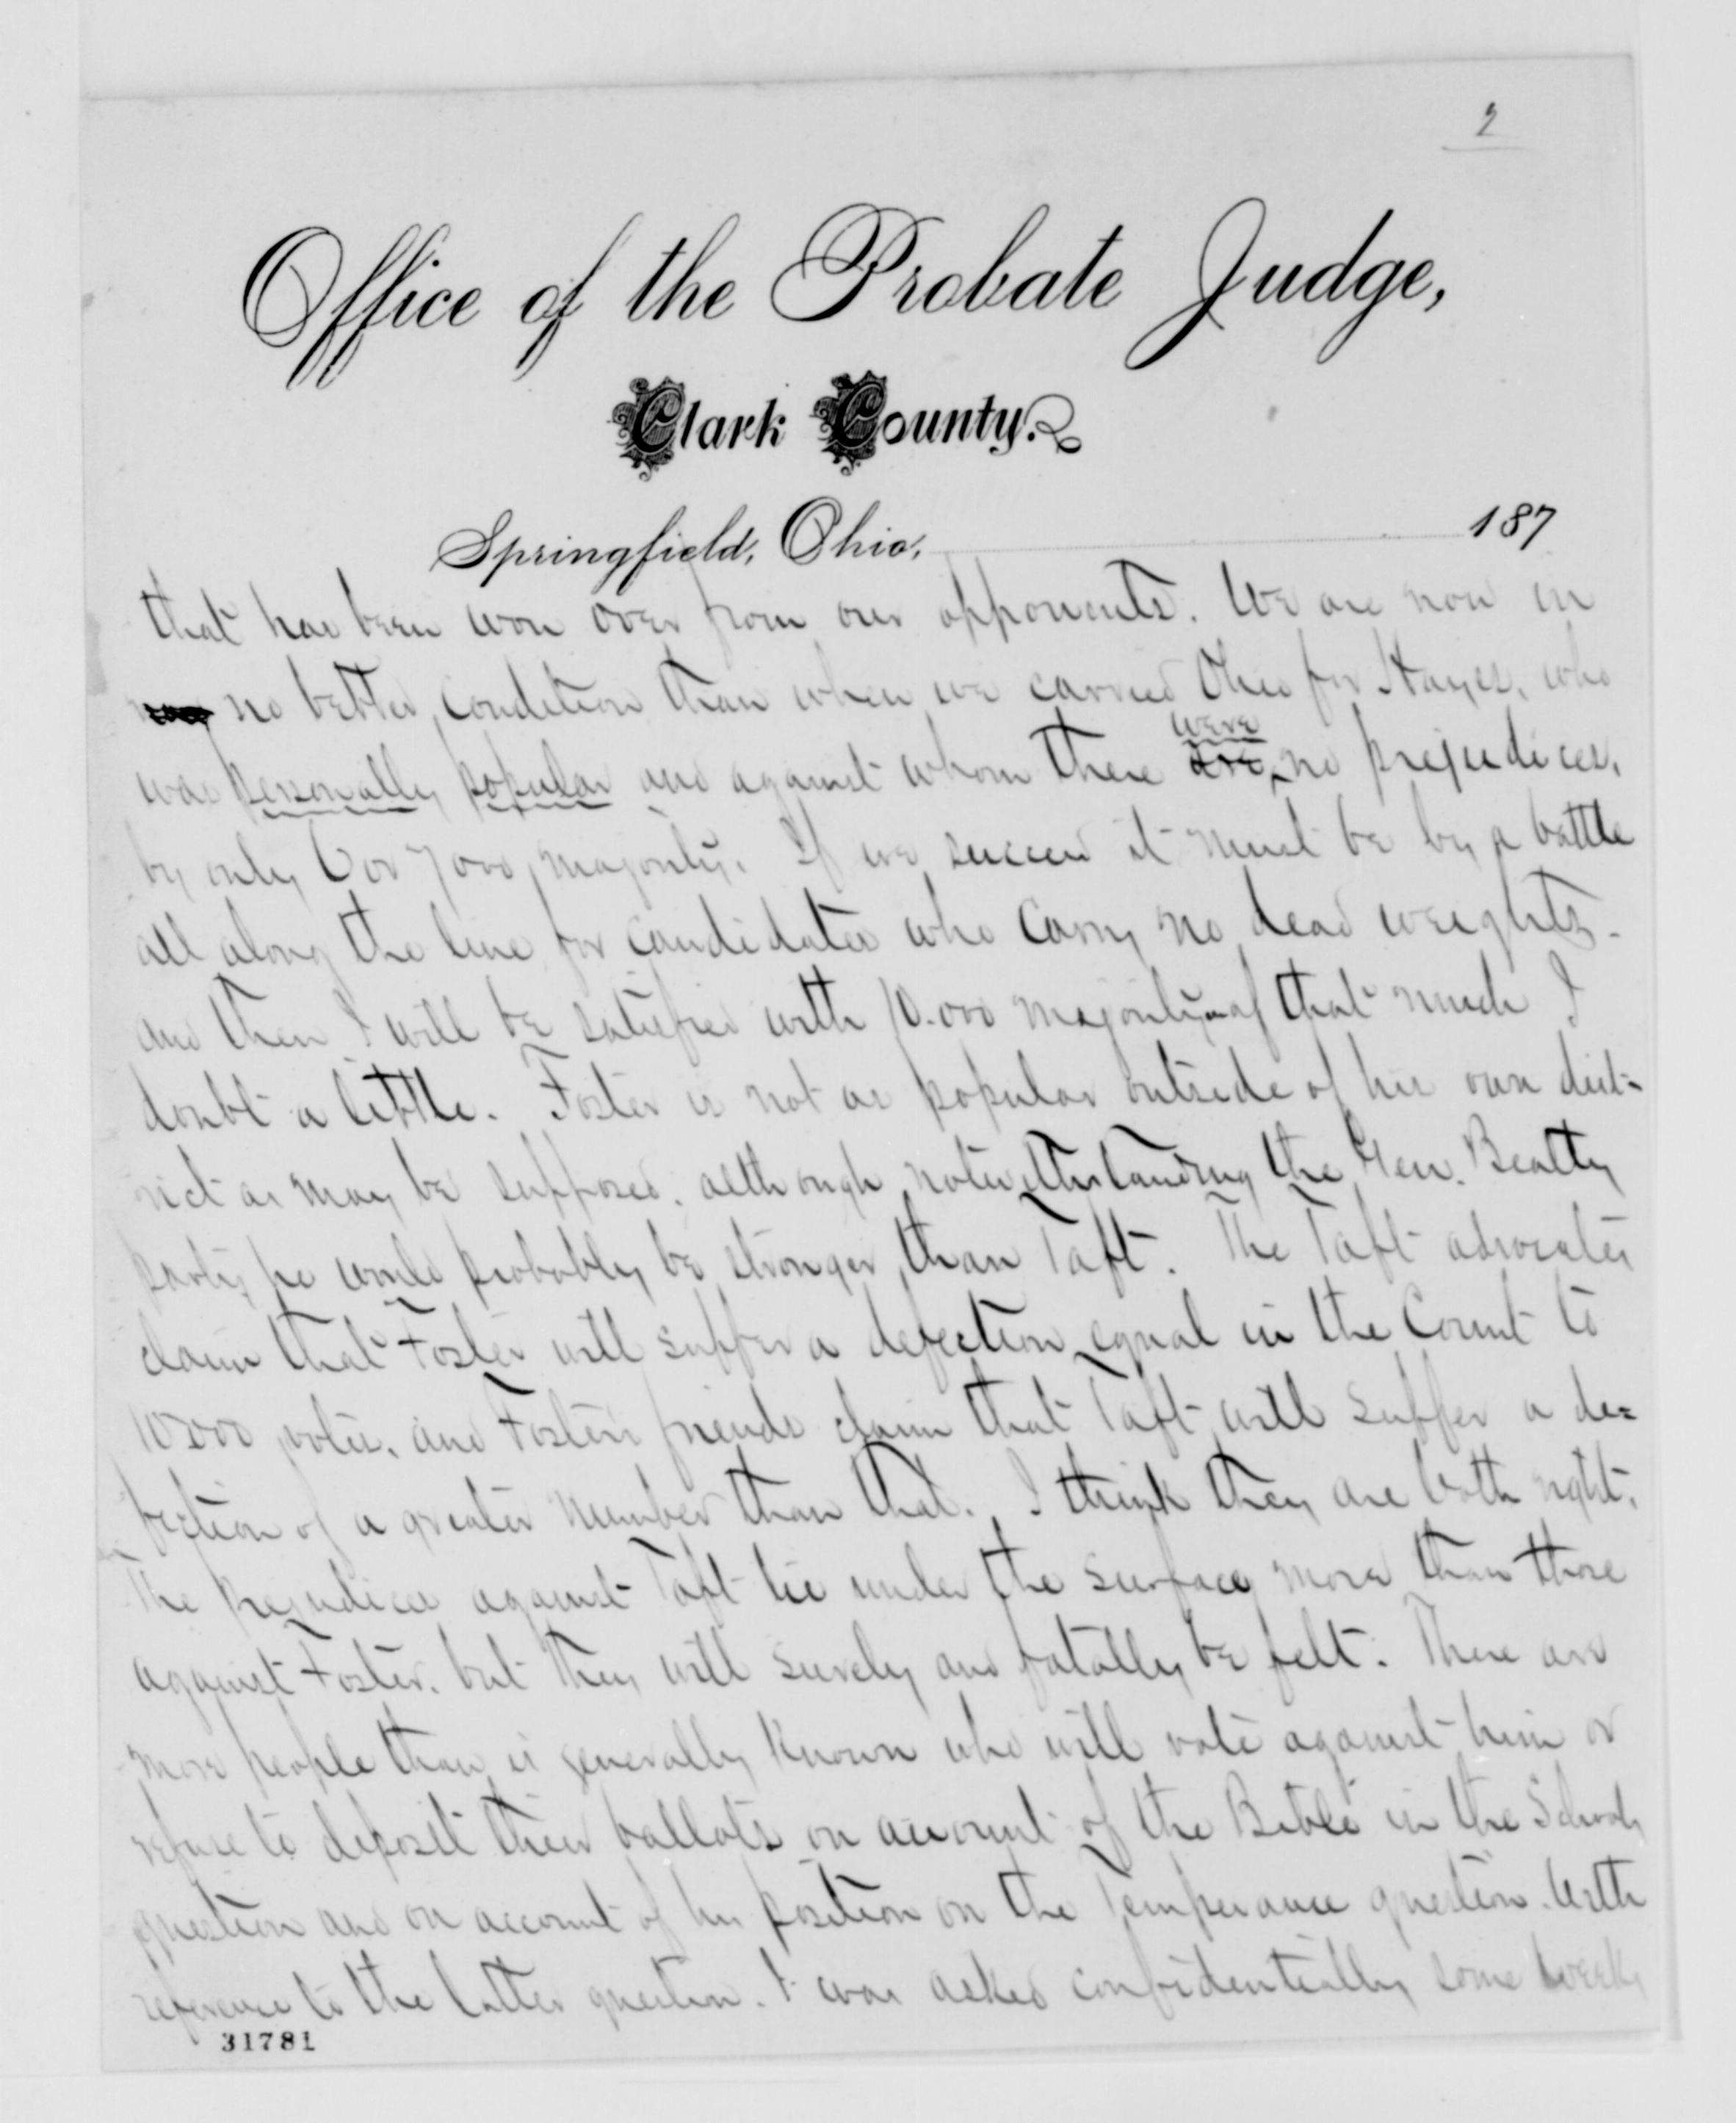 2
Office of the Probate Judge,
Clark County.
Springfield, Ohio, 187
that has been won over from our opponents. We are now in
no better condition than when we carried Ohio for Hayes, who
was personally popular and against whom there are were no prejudices,
by only 6 or 7000 majority. If we succeed it must be by a battle
all along the line for candidates who carry no dead weights.
and then I will be satisfied with 10.000 majority—of that much I
doubt a little. Foster is not as popular outside of his own dist-
rict as may be supposed, although notwithstanding the Gen. Beatty
party he would probably be stronger than Taft. The Taft advocates
claim that Foster will suffer a defection equal in the Count to
10000 votes, and Fosters friends claim that Taft will suffer a de=
fection of a greater number than that. I think they are both right.
The prejudices against Taft lie under the surface more than those
against Foster, but they will surely and fatally be felt. There are
more people than is generally known who will vote against him or
refuse to deposit their ballots on account of the Bible in the Schools
question and on account of his position on the Temperance question. With
reference to the latter question. I was asked confidentially some weeks
31781